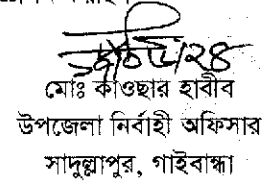 মোঃ কাওছার হাবীব
উপজেলা নির্বাহী অফিসার
সাদুল্লাপুর, গাইবান্ধা